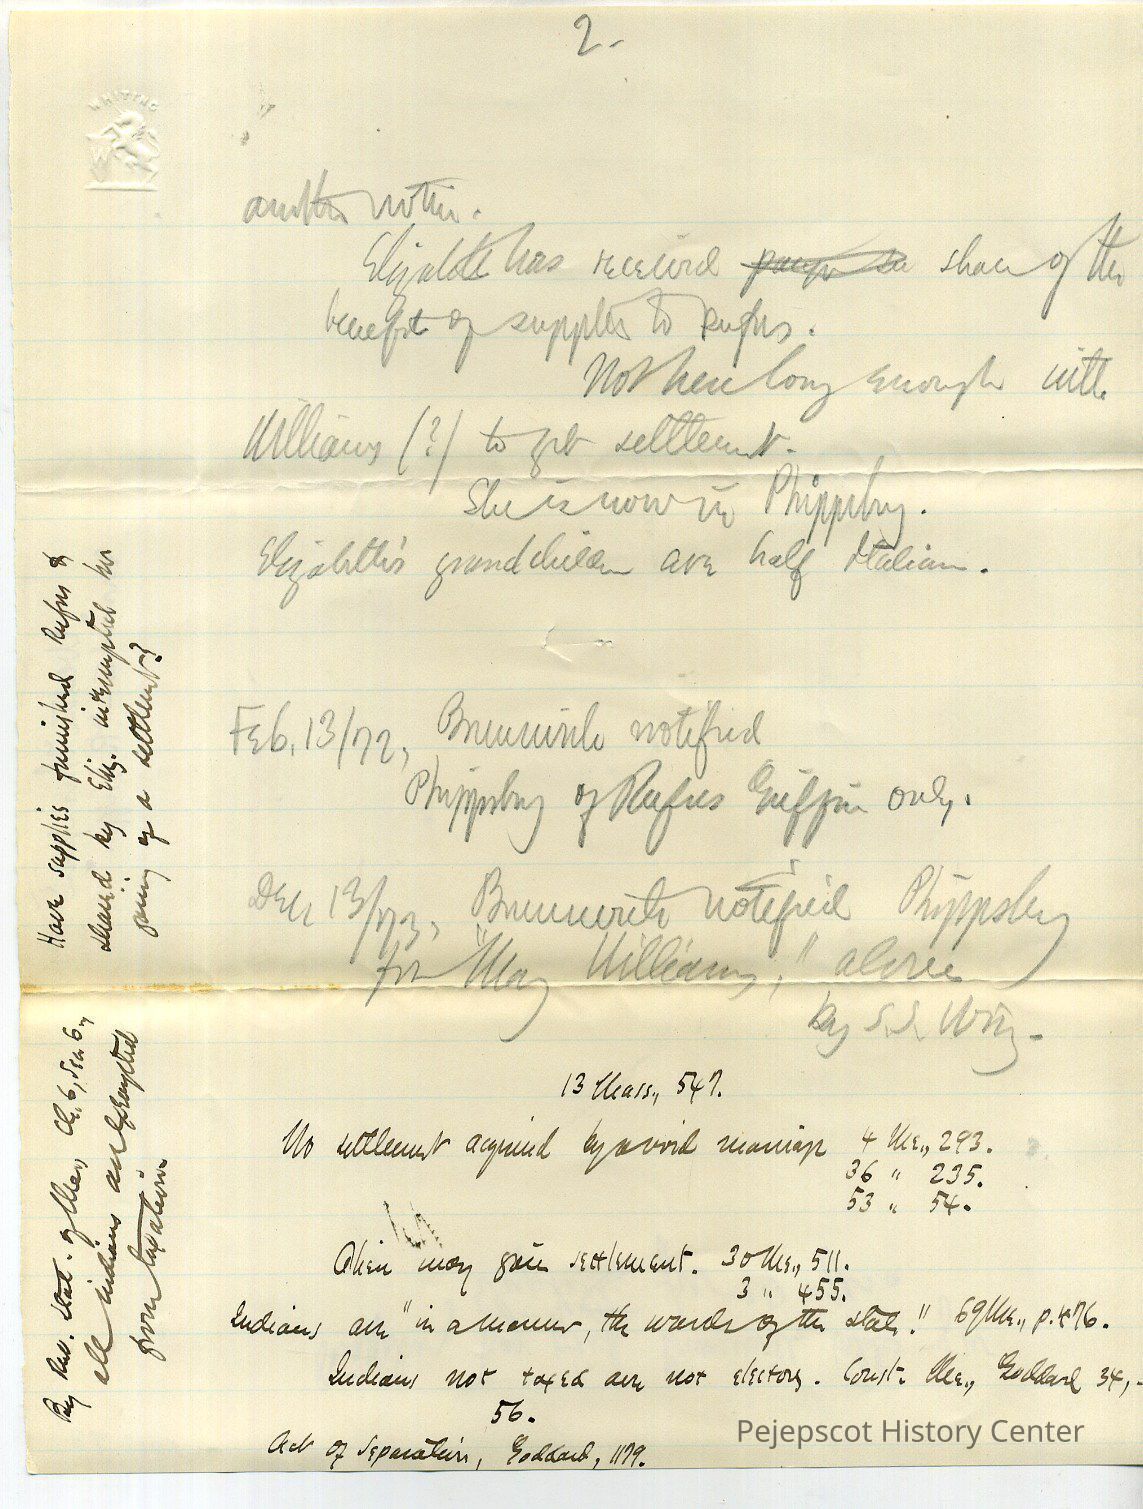 2.
WHITING
another notice.
Elizabeth has received share of the
benefit of supplies to Rufus.
Not been long enough with
Williams (?) to get settlement.
She is now in Phippsburg.
Elizabeth's grandchildren are half Italian.
Feb. 13/72, Brunswick notified
Phippsburg of Rufus Griffin only.
Dec 13/73, Brunswick notified Phippsburg
for "May Williams," alone
by
13 Mass., 547.
No settlement acquired by a void marriage 4 Me., 293.
36 " 235.
53 " 54.
Alien may gain settlement. 30 Me., 511.
3 " 455.
Indians are "in a manner, the wards of the state." 69 Me., p. 476.
Indians not taxed are not electors. Const. Me., Goddard 34,-
56.
Act of Separation, Goddard, 1179.
Have supplies furnished Rufus &
shared by Eliz. interrupted her
gaining of a settlement?
By Rev. Stat. of Me., Ch. 6, Sec. 6,
all Indians are exempted
from taxation
Pejepscot History Center